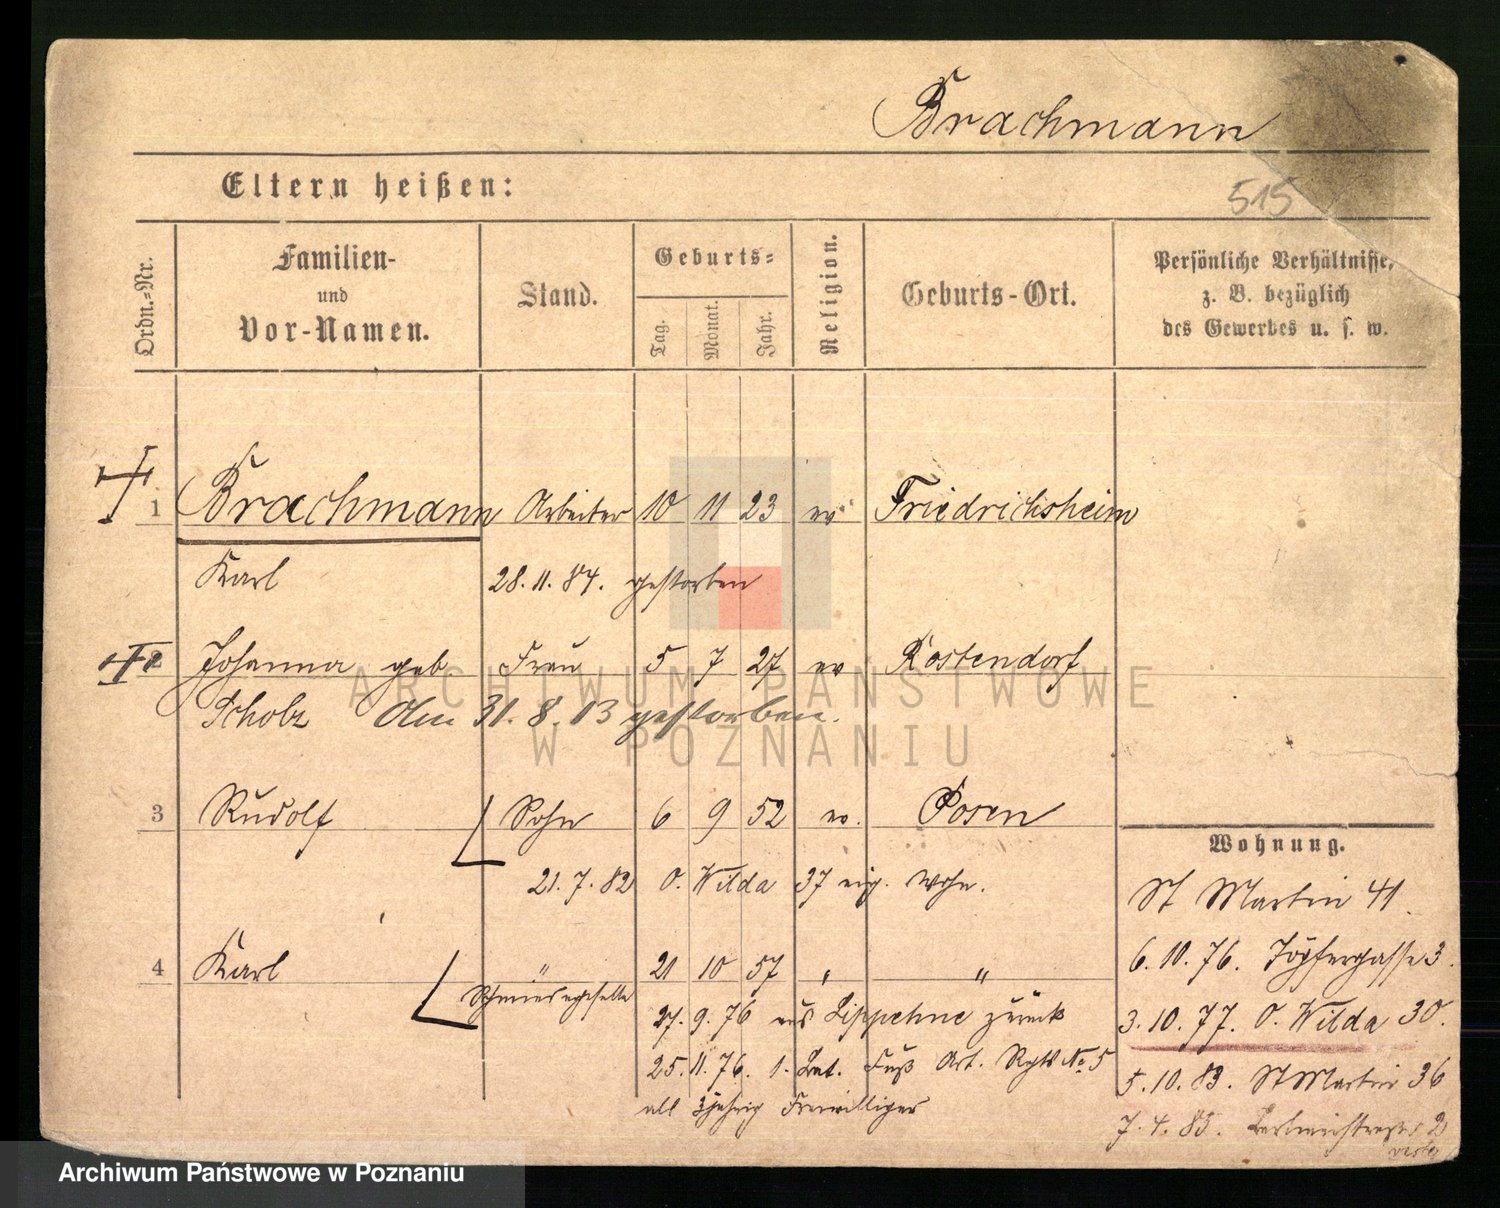 Brachmann
Eltern heißen:
515
Ordn.-Nr.
Familien-
und
Vor-Namen.
Stand.
Geburts-
Tag.
Monat.
Jahr.
Religion.
Geburts-Ort.
Persönliche Verhältnisse,
z. B. bezüglich
des Gewerbes u. s. w.
1 Brachmann Arbeiter 10 11 23 ev Friedrichsheim
Karl 28. 11. 84. gestorben
2 Johanna geb Frau 5 7 27 ev Kostendorf
Scholz Am 31. 8. 13 gestorben.
ARCHIWUM PAŃSTWOWE
W POZNANIU
3 Rudolf Sohn 6 9 52 ev. Posen
21. 7. 82 O. Wilda 37 eig. Wohn.
4 Karl " 21 10 57 " "
Schmiedegeselle
27. 9. 76 aus Lippehne zurück
25. 11. 76. 1. Bat. Fuß Art. Rgts No 5
als 3jährig Freiwilliger
Wohnung.
St Martin 41
6. 10. 76. Töpfergasse 3.
3. 10. 77. O. Wilda 30.
5. 10. 83. St Martin 36
7. 4. 85. 2
Archiwum Państwowe w Poznaniu